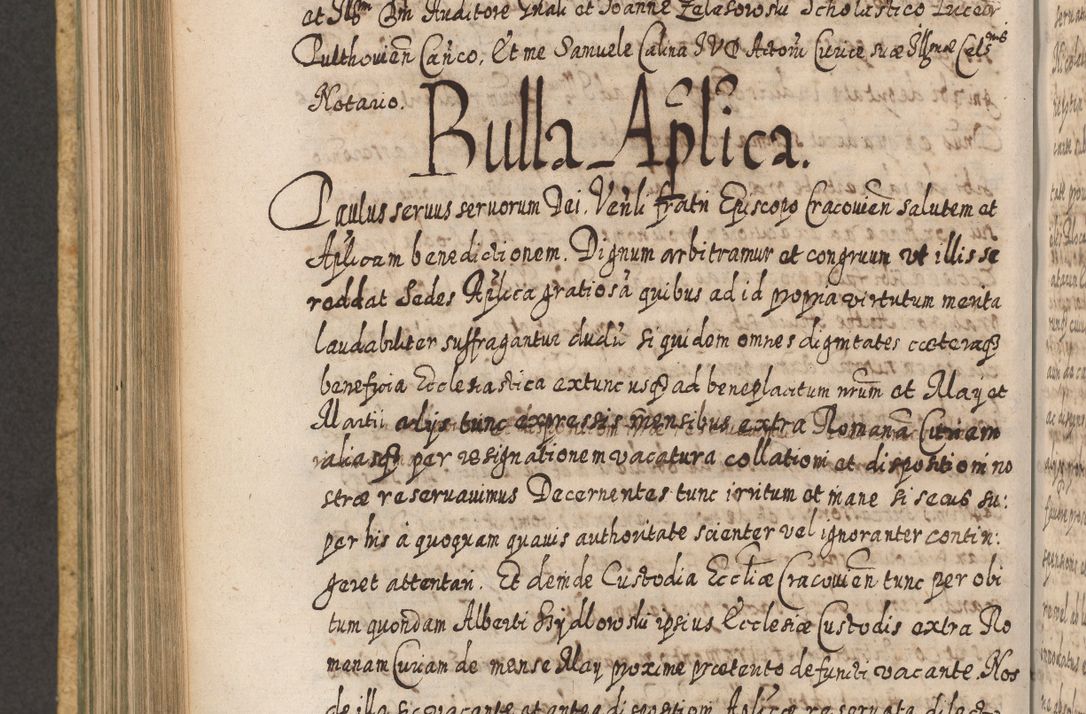 et Illm Dm Auditore Gnali et Joanne Zelasowski Scholastico Luceor
Pulthovien Canco, Et me Samuele Calina JVD Actorum Curiae suae Illmae Celsmae
Notario.
Bulla Aplica.
Paulus servus servorum Dei. Venli fratri Episcopo Cracovien salutem et
Aplicam benedictionem. Dignum arbitramur et congruum ut illis se
reddat Sedes Aplica gratiosa quibus ad id propria virtutum merita
laudabiliter suffragantur dudu siquidem omnes dignitates coeteraq
beneficia Ecclesiastica extunc usq ad beneplacitum nrum et May et
Martii alijs tunc expressis mensibus extra Romana Curiam
aliasq per resignationem vacatura collationi et dispositioni no
strae reservavimus Decernentes tunc irritum et inane si secus su:
per his à quoquam quavis authoritate scienter vel ignoranter contin:
geret attentari. Et deinde Custodia Eccliae Cracovien tunc per obi
tum quondam Alberti Szydlowski ipsius Ecclesiae Custodis extra Ro
manam Curiam de mense May proxime praetento defuncti vacante. Nos
de illa sic vacante et antea dispositioni Aplicae reservata dilecto